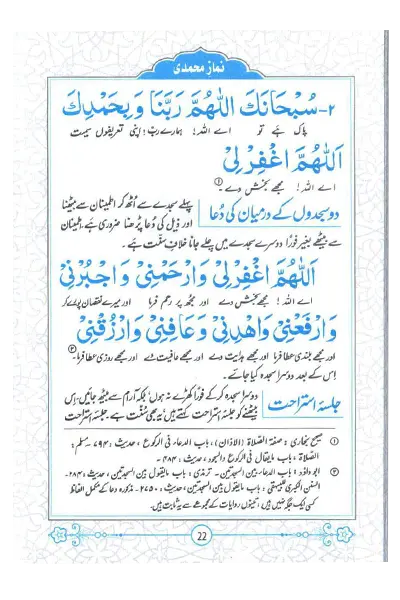 نماز محمدی
۲- سُبْحَانَكَ اللّٰهُمَّ رَبَّنَا وَبِحَمْدِكَ
پاک ہے تو اے اللہ! ہمارے رب! اپنی تعریفوں سمیت
اَللّٰهُمَّ اغْفِرْ لِىْ
اے اللہ! مجھے بخش دے۔ ①
دو سجدوں کے درمیان کی دُعا
پہلے سجدے سے اُٹھ کر اطمینان سے بیٹھنا
اور ذیل کی دُعا پڑھنا ضروری ہے، اطمینان
سے بیٹھے بغیر فوراً دوسرے سجدے میں چلے جانا خلافِ سنّت ہے۔
اَللّٰهُمَّ اغْفِرْ لِىْ وَارْحَمْنِىْ وَاجْبُرْنِىْ
اے اللہ! مجھے بخش دے اور مجھ پر رحم فرما اور میرے نقصان پورے کر
وَارْفَعْنِىْ وَاهْدِنِىْ وَعَافِنِىْ وَارْزُقْنِىْ
اور مجھے بلندی عطا فرما اور مجھے ہدایت دے اور مجھے عافیت دے اور مجھے روزی عطا فرما۔ ②
اِس کے بعد دوسرا سجدہ کیا جائے۔
جلسۂ استراحت
دوسرا سجدہ کر کے فوراً کھڑے نہ ہوں بلکہ آرام سے بیٹھ جائیں، اِس
بیٹھنے کو جلسۂ استراحت کہتے ہیں یہ بھی سُنّت ہے۔ جلسۂ استراحت
① صحیح بخاری: صفة الصلاة (الاذان)، باب الدعاء فی الرکوع، حدیث: ۷۹۴۔ مسلم:
الصلاة، باب مایقال فی الرکوع والسجود، حدیث: ۴۸۴۔
② ابوداود: باب الدعاء بین السجدتین۔ ترمذی: باب مایقول بین السجدتین، حدیث: ۲۸۴۔
السنن الکبریٰ للبیہقی: باب مایقول بین السجدتین، حدیث: ۲۷۵۰۔ مذکورہ دعا کے مکمل الفاظ
کسی ایک جگہ نہیں ہیں، تینوں روایات کے مجموعے سے یہ ثابت ہیں۔
22